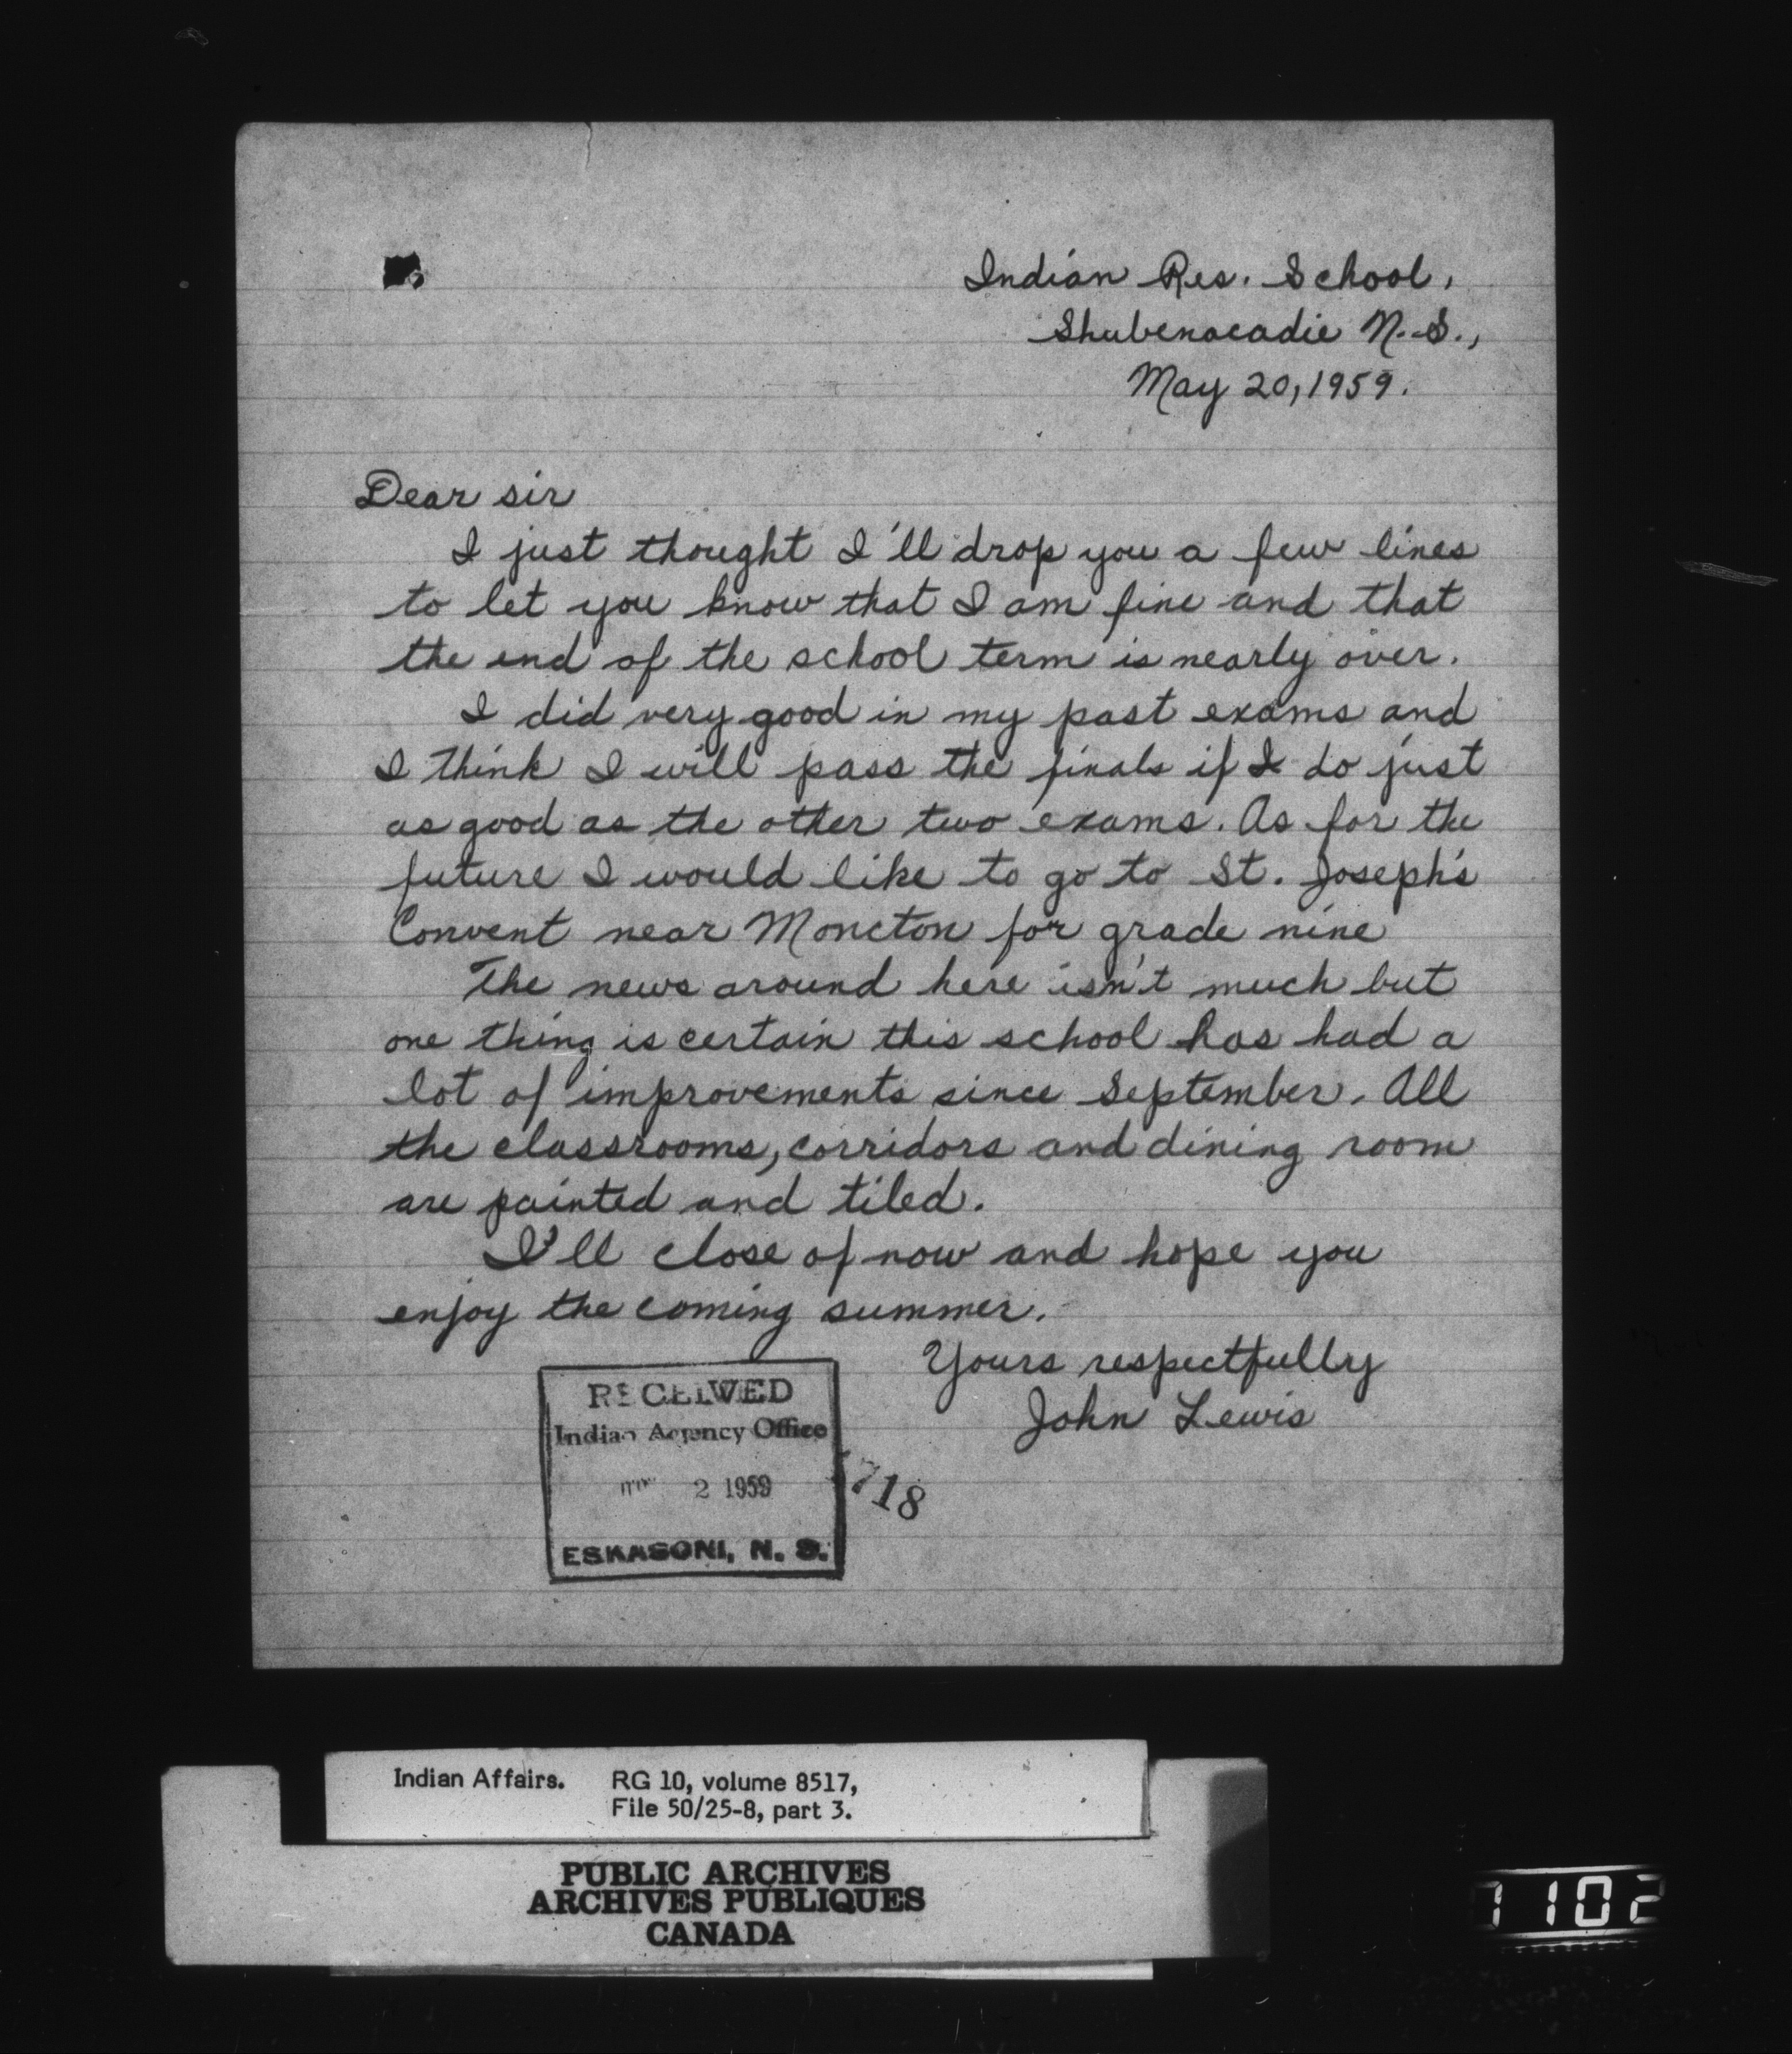 Indian Res. School,
Shubenacadie N.S.,
May 20, 1959.
Dear sir
I just thought I'll drop you a few lines
to let you know that I am fine and that
the end of the school term is nearly over.
I did very good in my past exams and
I think I will pass the finals if I do just
as good as the other two exams. As for the
future I would like to go to St. Joseph's
Convent near Moncton for grade nine
The news around here isn't much but
one thing is certain this school has had a
lot of improvements since September. All
the classrooms, corridors and dining room
are painted and tiled.
I'll close of now and hope you
enjoy the coming summer.
Yours respectfully
John Lewis
RECEIVED
Indian Agency Office
2 1959
718
ESKASONI, N. S.
Indian Affairs. RG 10, volume 8517,
File 50/25-8, part 3.
PUBLIC ARCHIVES
ARCHIVES PUBLIQUES
CANADA
1102